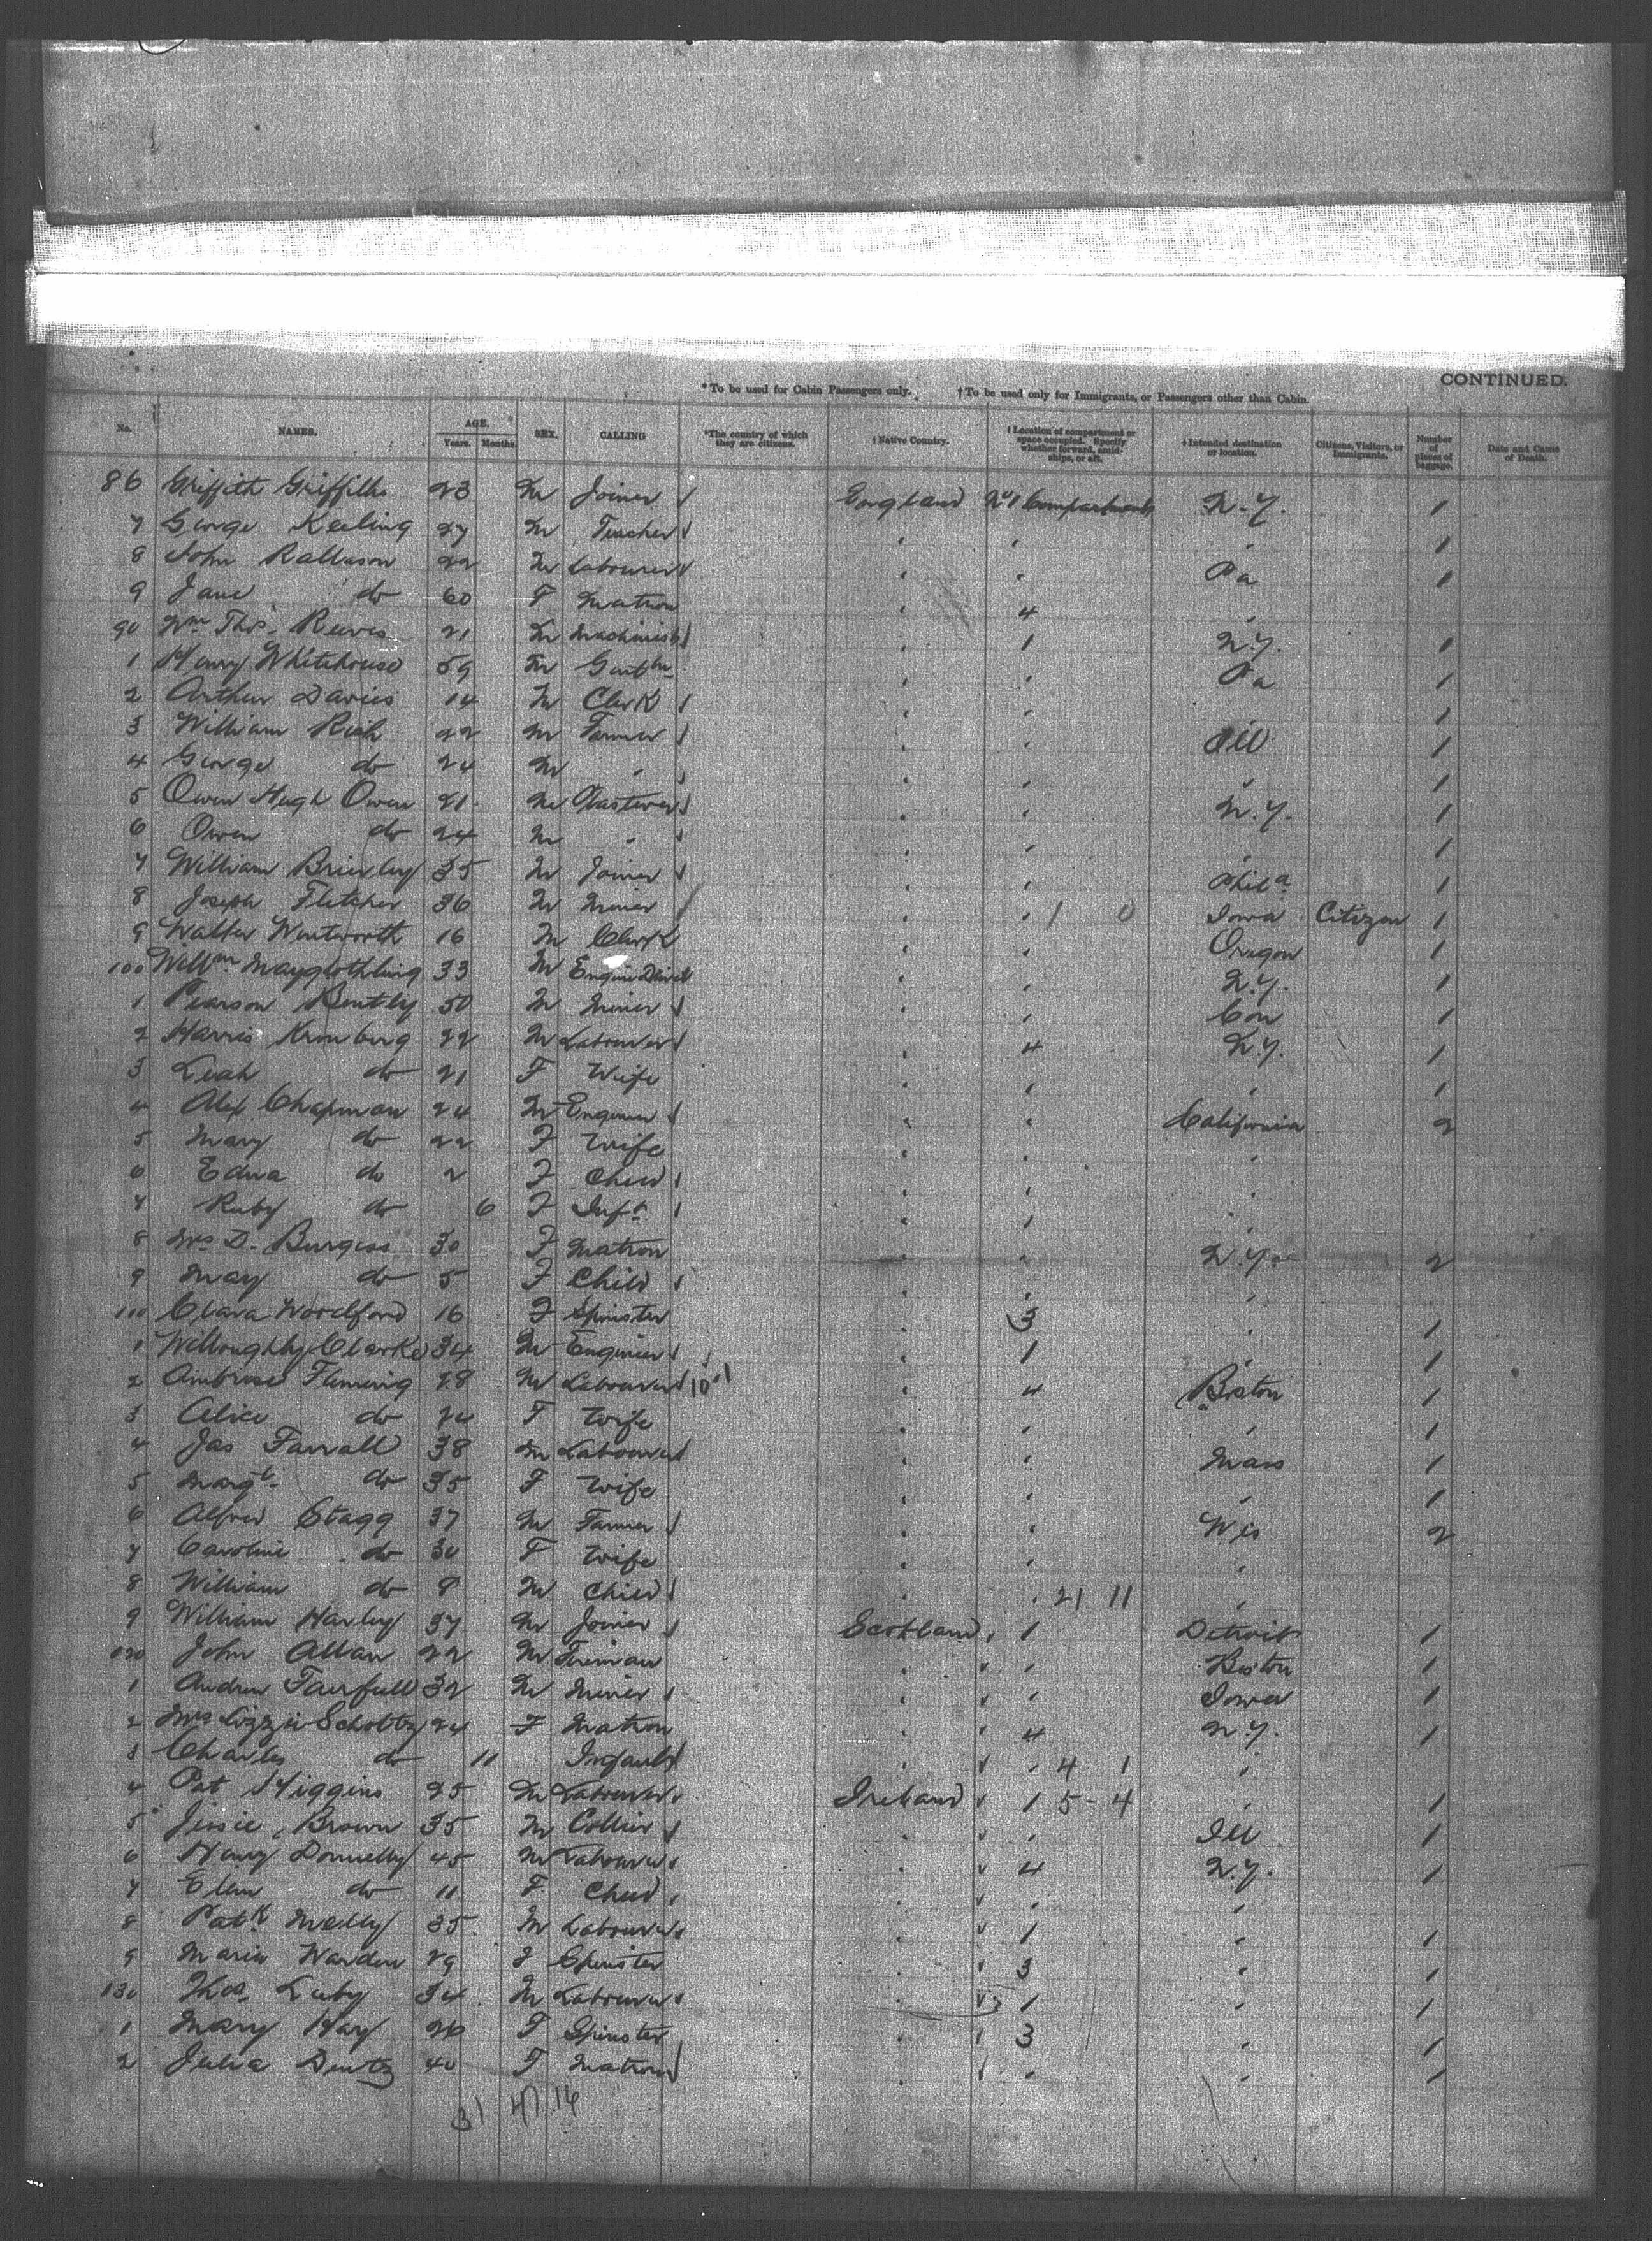 CONTINUED.
*To be used for Cabin Passengers only. †To be used only for Immigrants, or Passengers other than Cabin.
No. NAMES. AGE. Years. Months. SEX. CALLING *The country of which they are citizens. †Native Country. †Location of compartment or space occupied. Specify whether forward, amidships, or aft. †Intended destination or location. Citizens, Visitors, or Immigrants. Number of pieces of baggage. Date and Cause of Death.
86 Griffith Griffiths 23 M Joiner England No 1 Compartment N.Y. 1
7 George Keeling 27 M Teacher " " " 1
8 John Rallason 22 M Labourer " " Pa 1
9 Jane do 60 F Matron " 4 "
90 Wm Thos. Reeves 21 M Machinist " 1 N.Y. 1
1 Henry Whitehouse 59 M Gentn " " Pa 1
2 Arthur Davies 14 M Clerk " " 1
3 William Rich 22 M Farmer " " Ill 1
4 George do 24 M " " " " 1
5 Owen Hugh Owen 21 M " " N.Y. 1
6 Owen do 24 M " " " " 1
7 William Brierley 35 M Joiner " " Phila 1
8 Joseph Fletcher 36 M Miner " " 1 0 Iowa Citizen 1
9 Walter Wentworth 16 M Clerk " " Oregon 1
100 Willm Mayglothling 33 M Engine Driver " " N.Y. 1
1 Pearson Bentley 50 M Miner " " Con 1
2 Harris Kronberg 22 M Labourer " 4 N.Y. 1
3 Leah do 21 F Wife " " " 1
4 Alex Chapman 24 M Engineer " " California 2
5 Mary do 22 F Wife " " "
6 Edna do 2 F Child " " "
7 Ruby do 6 F Inft " " "
8 Mrs D. Burgess 30 F Matron " " N.Y. 2
9 May do 5 F Child " " "
110 Clara Woodford 16 F Spinster " 3 " 1
1 Willoughby Clarke 34 M Engineer " 1 " 1
2 Ambrose Fleming 28 M Labourer " 4 Boston 1
3 Alice do 24 F Wife " " " 1
4 Jas Farrall 38 M Labourer " " Mass 1
5 Margt. do 35 F Wife " " " 1
6 Alfred Stagg 37 M Farmer " " Wis 2
7 Caroline do 30 F Wife " " "
8 William do 8 M Child " " 21 11 "
9 William Harley 37 M Joiner Scotland 1 Detroit 1
120 John Allan 22 M Fireman " " Boston 1
1 Andrew Fairfull 32 M Miner " " Iowa 1
2 Mrs Lizzie Scholtz 24 F Matron " 4 N.Y. 1
3 Charles do 11 Infant " " 4 1 "
4 Pat Higgins 25 M Labourer Ireland 1 5-4 " 1
5 Jessie Brown 35 M Collier " " Ill 1
6 Henry Donnelly 45 M Labourer " 4 N.Y. 1
7 Ellen do 11 F Child " " "
8 Patk Melly 35 M Labourer " 1 " 1
9 Maria Warden 29 F Spinster " 3 " 1
130 Thos. Luby 34 M Labourer " 1 " 1
1 Mary Hay 26 F Spinster " 3 " 1
2 Julia 40 F Matron " " " 1
31 47 16